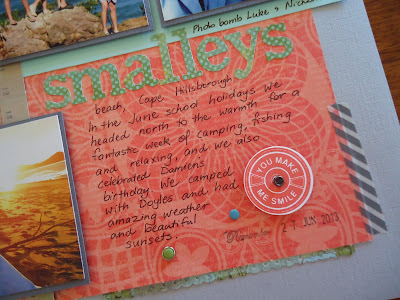 Photo bomb Luke & Nicholas
smalleys
beach, Cape Hillsborough
In the June school holidays we
headed north to the warmth for a
fantastic week of camping, fishing
and relaxing, and we also
celebrated Damiens
birthday. We camped
with Doyles and had
amazing weather
and beautiful
sunsets.
YOU MAKE
ME SMILE
27 JUN 2013